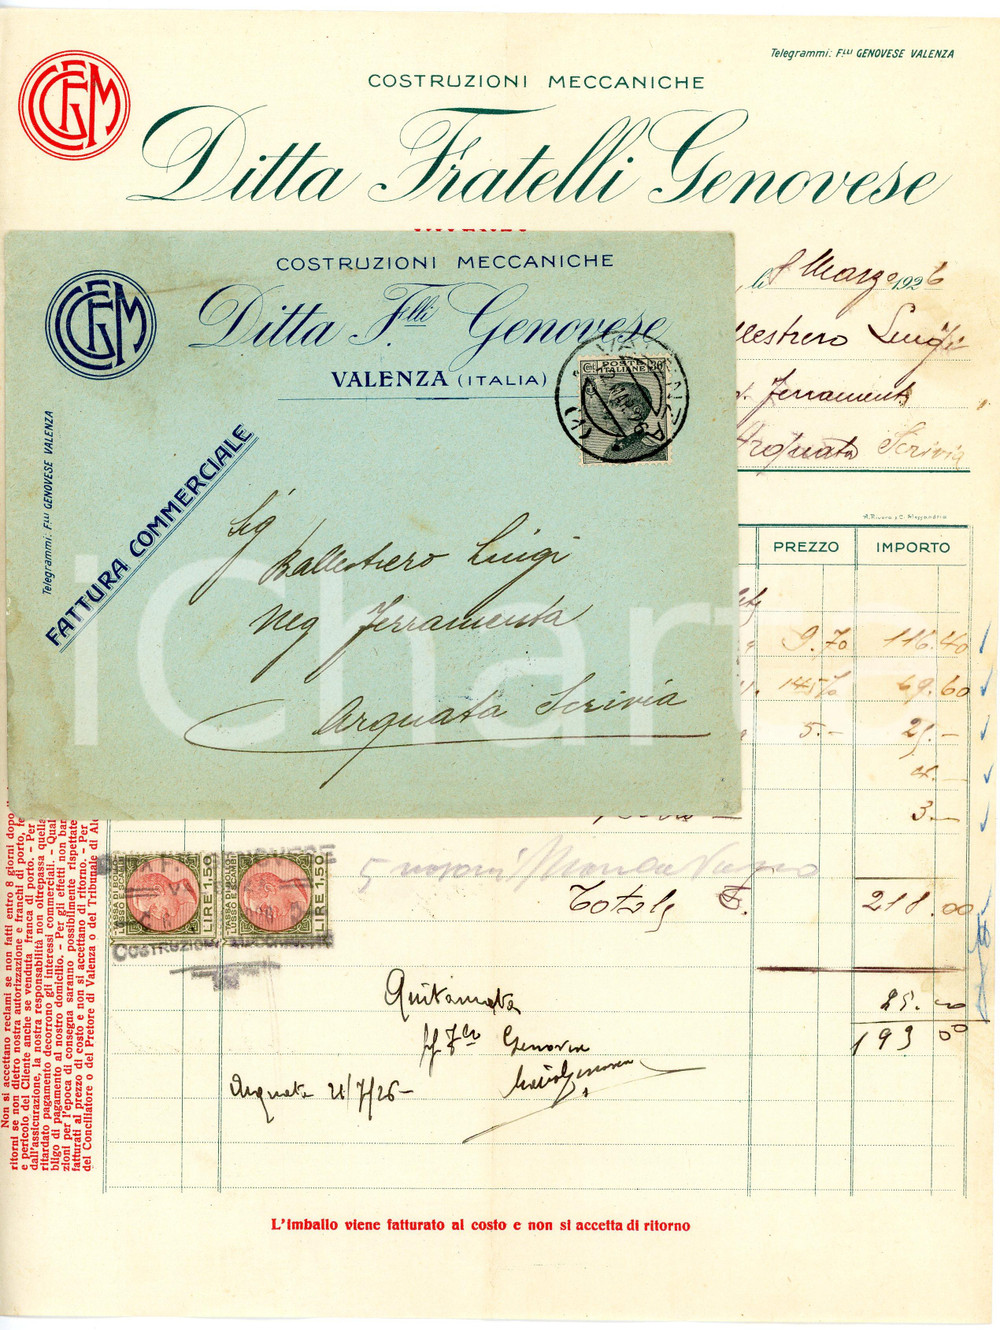 Telegrammi: F.lli GENOVESE VALENZA
COSTRUZIONI MECCANICHE
Ditta Fratelli Genovese
CGFM
li 8 Marzo 1926
Ballestrero Luigi
Ferramenta
Arquata Scrivia
COSTRUZIONI MECCANICHE
Ditta F.lli Genovese
VALENZA (ITALIA)
CGFM
Telegrammi: F.lli GENOVESE VALENZA
FATTURA COMMERCIALE
POSTE ITALIANE
VALENZA
Sig
Ballestrero Luigi
Neg Ferramenta
Arquata Scrivia
iCharta
A. Rivara & C. Alessandria
PREZZO IMPORTO
9.70 116.40
145% 69.60
5.- 25.-
4.-
3.-
Totale £. 218.00
25.00
193 00
TASSA DI BOLLO
LUSSO E SCAMBI
LIRE 1.50
TASSA DI BOLLO
LUSSO E SCAMBI
LIRE 1.50
GENOVESE
COSTRUZIONI MECCANICHE
Quitanzata
Genovese
Arquata 21/7/26-
Non si accettano reclami se non fatti entro 8 giorni dopo
ritorni se non dietro nostra autorizzazione e franchi di porto,
e pericolo del Cliente anche se venduta franca di porto. - Per
dall'assicurazione, la nostra responsabilità non oltrepassa quella
ritardato pagamento decorrono gli interessi commerciali. -
bligo di pagamento al nostro domicilio. - Per gli effetti non
zioni per l'epoca di consegna saranno possibilmente rispettate
fatturati al prezzo di costo e non si accettano di ritorno. - Per
del Conciliatore o del Pretore di Valenza o del Tribunale di
L'imballo viene fatturato al costo e non si accetta di ritorno